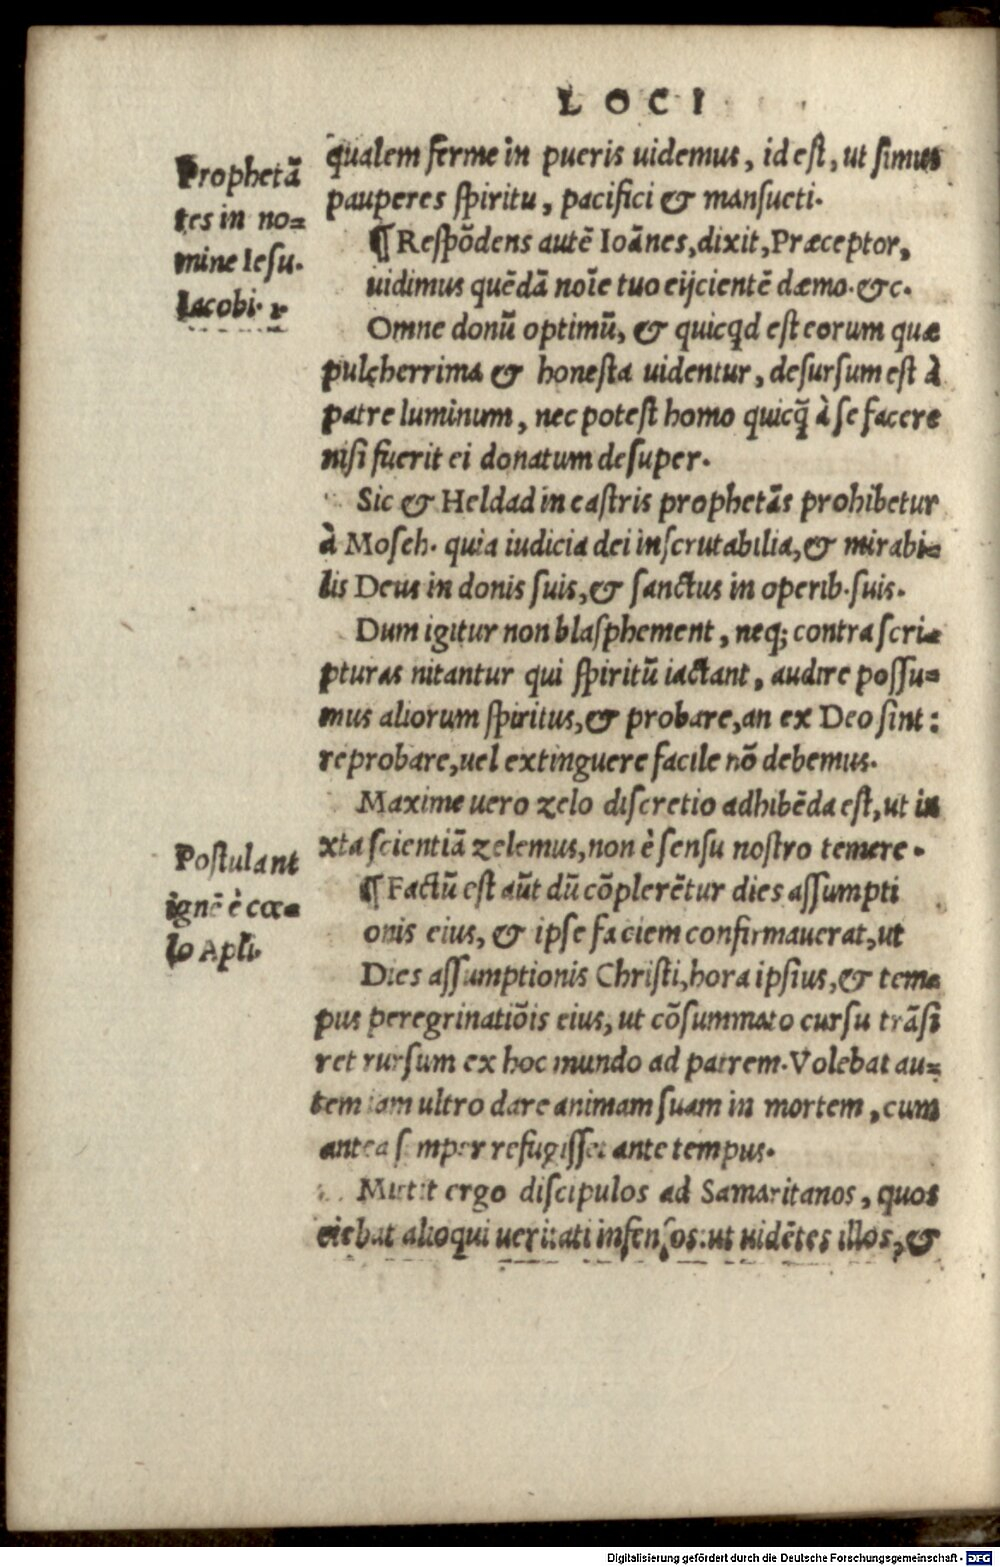 LOCI
Prophetā
tes in no=
mine Iesu.
Iacobi. 1
qualem ferme in pueris uidemus, id est, ut simus
pauperes spiritu, pacifici & mansueti.
¶ Respōdens autē Ioānes, dixit, Præceptor,
uidimus quēdā noīe tuo eijcientē dæmo. &c.
Omne donū optimū, & quicqd est eorum quæ
pulcherrima & honesta uidentur, desursum est à
patre luminum, nec potest homo quicq̄ à se facere
nisi fuerit ei donatum desuper.
Sic & Heldad in castris prophetās prohibetur
à Moseh. quia iudicia dei inscrutabilia, & mirabi=
lis Deus in donis suis, & sanctus in operib. suis.
Dum igitur non blasphement, neq; contra scri=
pturas nitantur qui spiritū iactant, audire possu=
mus aliorum spiritus, & probare, an ex Deo sint:
reprobare, uel extinguere facile nō debemus.
Maxime uero zelo discretio adhibēda est, ut iu
xta scientiā zelemus, non è sensu nostro temere.
Postulant
ignē è cœ=
lo Apli.
¶ Factū est aūt dū cōplerētur dies assumpti
onis eius, & ipse faciem confirmauerat, ut
Dies assumptionis Christi, hora ipsius, & tem=
pus peregrinatiōis eius, ut cōsummato cursu trāsi
ret rursum ex hoc mundo ad patrem. Volebat au=
tem iam ultro dare animam suam in mortem, cum
antea semper refugisset ante tempus.
Mittit ergo discipulos ad Samaritanos, quos
sciebat alioqui ueritati infensos: ut uidētes illos, &
Digitalisierung gefördert durch die Deutsche Forschungsgemeinschaft - DFG